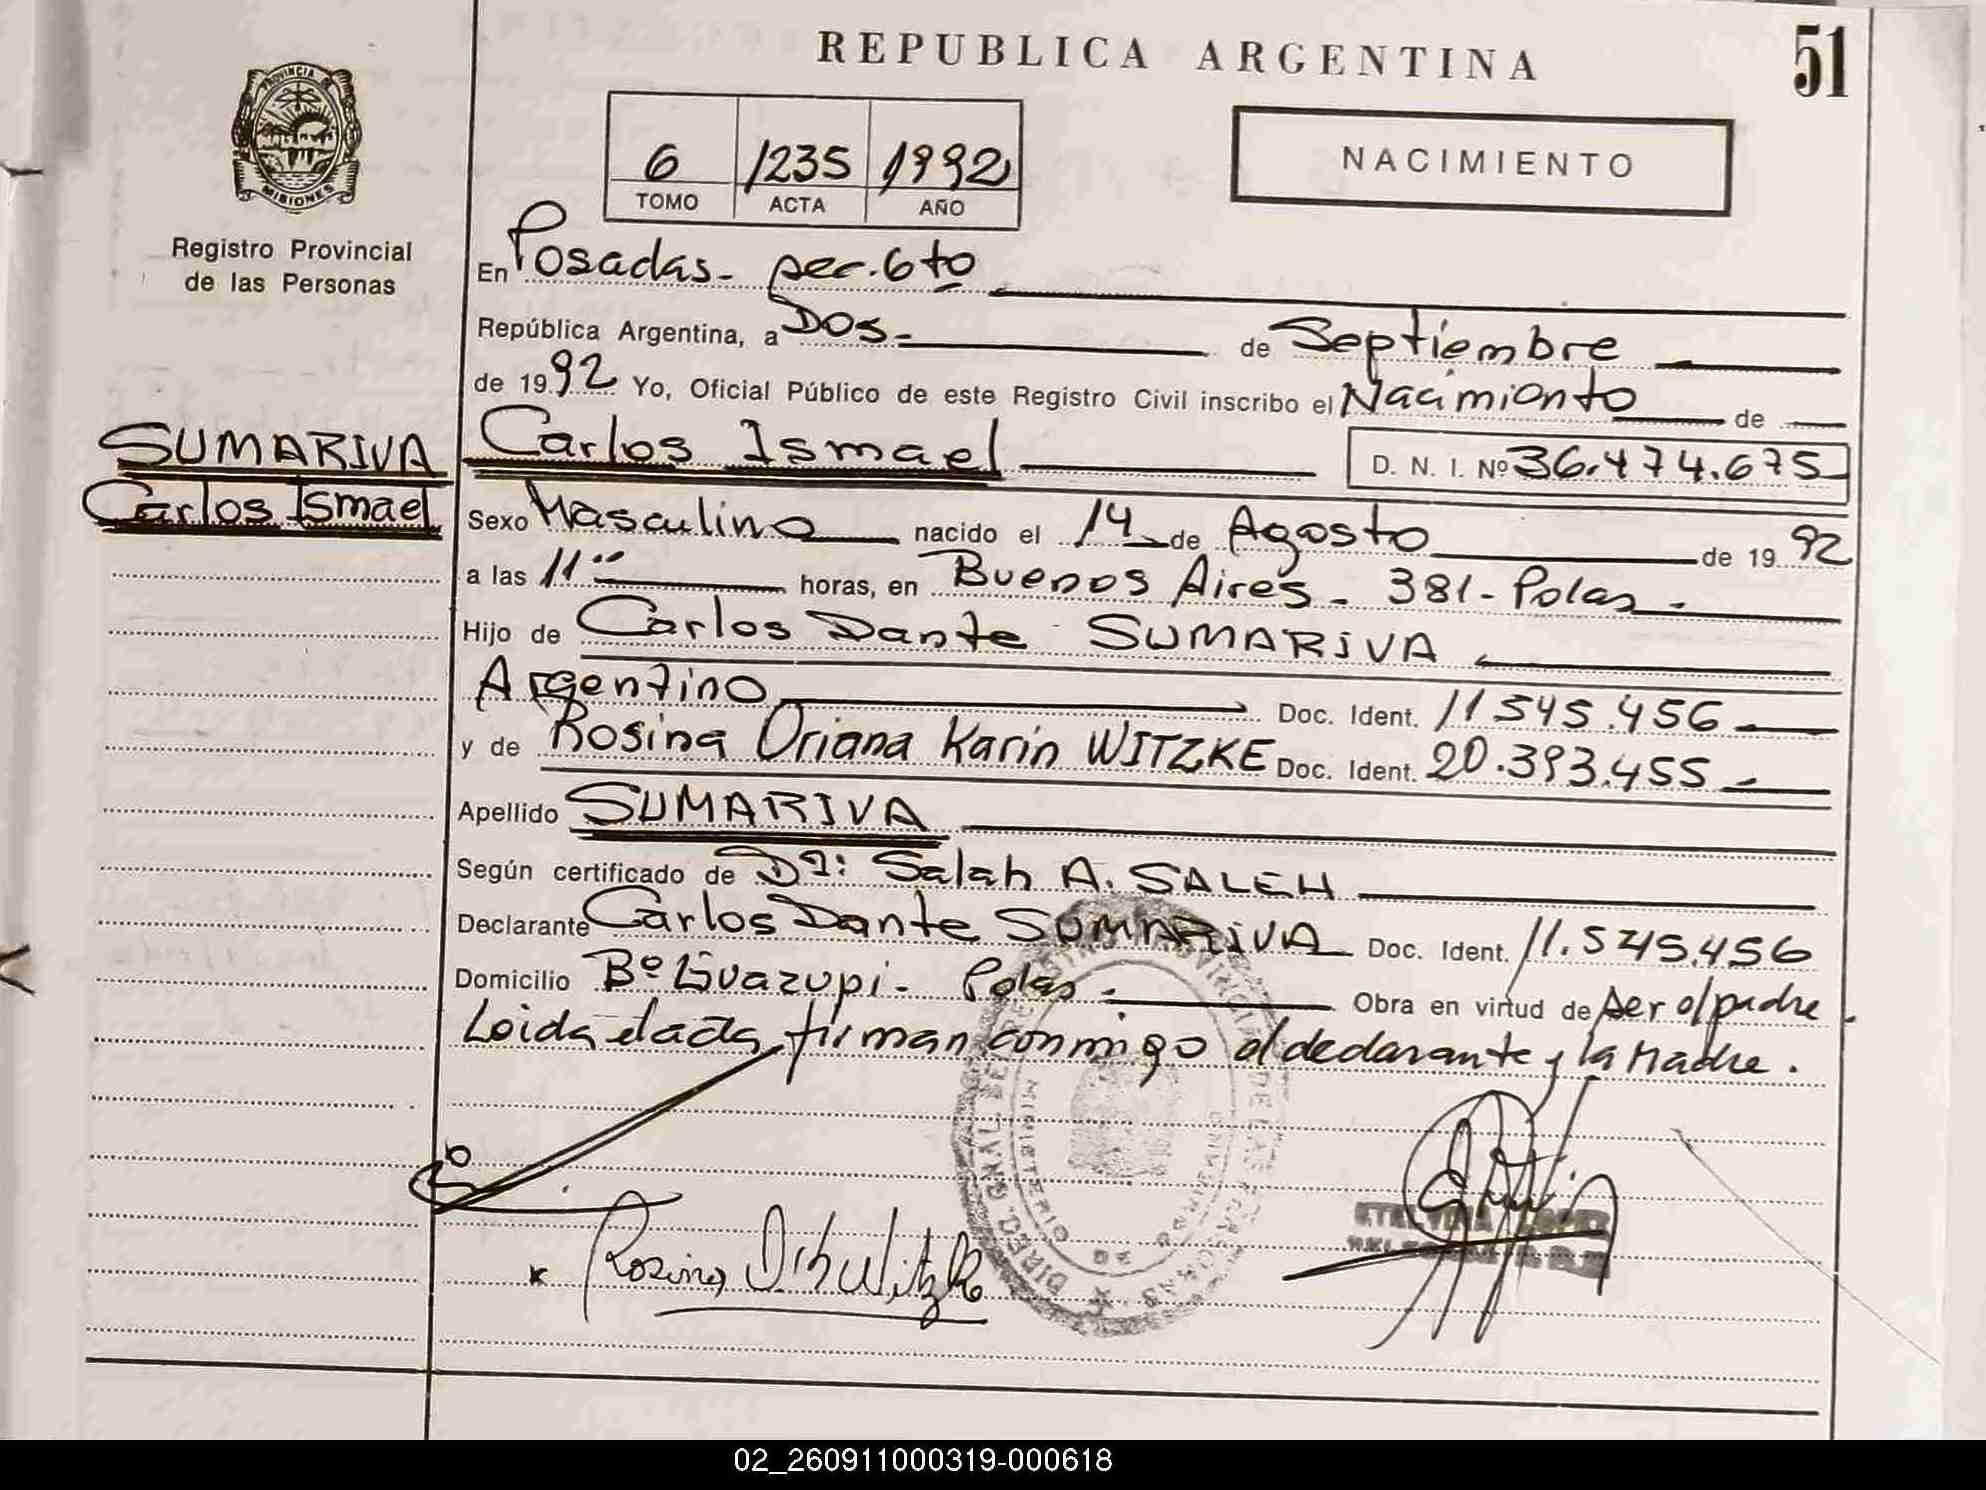 REPUBLICA ARGENTINA
51
PROVINCIA
MISIONES
Registro Provincial
de las Personas
6 1235 1992
TOMO ACTA AÑO
NACIMIENTO
En Posadas - sec. 6to
República Argentina, a Dos - de Septiembre
de 1992 Yo, Oficial Público de este Registro Civil inscribo el Nacimiento de
SUMARIVA
Carlos Ismael
Carlos Ismael D. N. I. Nº 36.474.675
Sexo Masculino nacido el 14 de Agosto de 19 92
a las 11 horas, en Buenos Aires - 381 - Pdas -
Hijo de Carlos Dante SUMARIVA
Argentino Doc. Ident. 11545.456
y de Rosina Oriana Karin WITZKE Doc. Ident. 20.393.455 -
Apellido SUMARIVA
Según certificado de Dr: Salah A. SALEH
Declarante Carlos Dante SUMARIVA Doc. Ident. 11.545.456
Domicilio Bº Guazupi - Pdas - Obra en virtud de ser el padre
Leida el acta firman conmigo el declarante y la Madre.
Rosina Witzke
ETELVINA LOPEZ
02_260911000319-000618